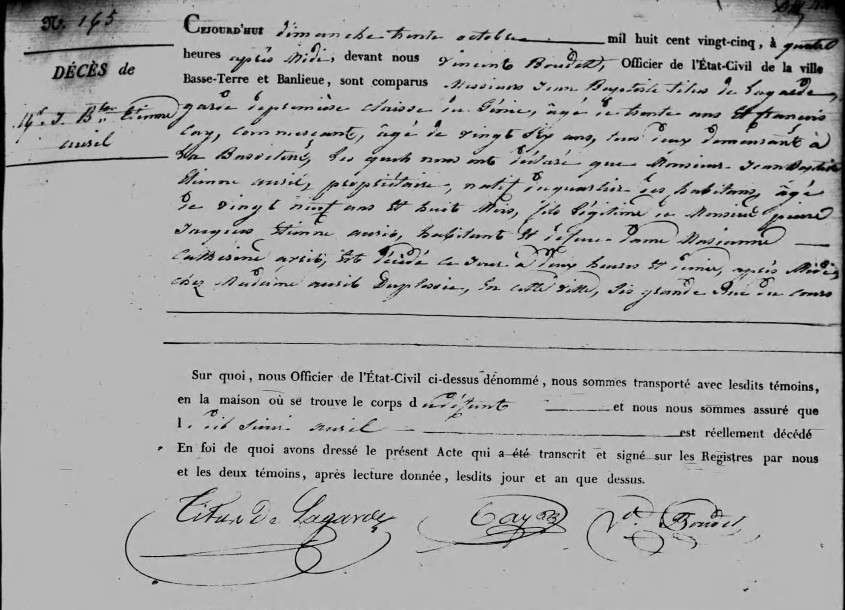 N.° 165
DÉCÈS de
M.r J. B.te Etienne
auril
CEJOURD'HUI dimanche trente octobre mil huit cent vingt-cinq, à quatre
heures après Midi, devant nous Vincent Boudet, Officier de l'État-Civil de la ville
Basse-Terre et Banlieue, sont comparus Messieurs Jean Baptiste titus de Lagarde,
garde de premiere classe du Génie, âgé de trente ans Et françois
Cay, commerçant, âgé de vingt six ans, tous deux demeurant à
La Basseterre, Les quels nous ont déclaré que Monsieur Jean Baptiste
Etienne auril, propriétaire, natif du quartier des habitans, âgé
de vingt neuf ans Et huit Mois, fils légitime de Monsieur pierre
Jacques Etienne auril, habitant Et défunte dame Marianne
Catherine, Est décédé ce Jour à deux heures Et demie, après Midi,
chez Madame auril Duplessis, En cette ville, sis grande Rue du Cours
Sur quoi, nous Officier de l'État-Civil ci-dessus dénommé, nous sommes transporté avec lesdits témoins,
en la maison où se trouve le corps du défunt et nous nous sommes assuré que
le dit Sieur auril est réellement décédé
En foi de quoi avons dressé le présent Acte qui a été transcrit et signé sur les Registres par nous
et les deux témoins, après lecture donnée, lesdits jour et an que dessus.
Titus De Lagarde Cay V.t Boudet